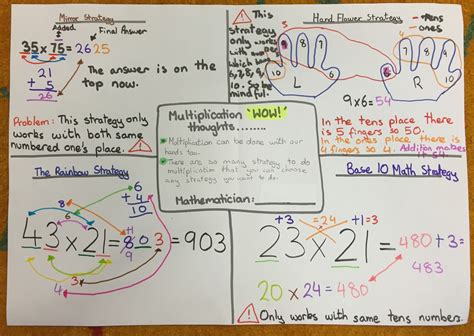 Mirror Strategy
Added
Final Answer
35 x 75 = 2625
21
+ 5
26
The answer is on the
top now.
Problem: This strategy only
works with both same
numbered one's place.
Hand Flower Strategy
This
strategy
only works
6,7,8,9,
10. So be
mindful.
Tens
ones
6
7
8
9
10
L
10
9
8
7
6
R
9x6=54
In the tens place there
is 5 fingers so 50.
In the ones place, there is
4 fingers so 4. Addition makes
54
Multiplication 'WOW!'
thoughts.......
Multiplication can be done with our
hands too.
There are so many strategy to do
multiplication that you can choose
any strategy you want to do.
Mathematician:
The Rainbow Strategy
8
6
+ 4
10
43 x 21 = 803 = 903
9
3
4
Base 10 Math Strategy
+3 =24 +1=3
23 x 21 = 480 + 3 =
483
20 x 24 = 480
Only works with same tens number.